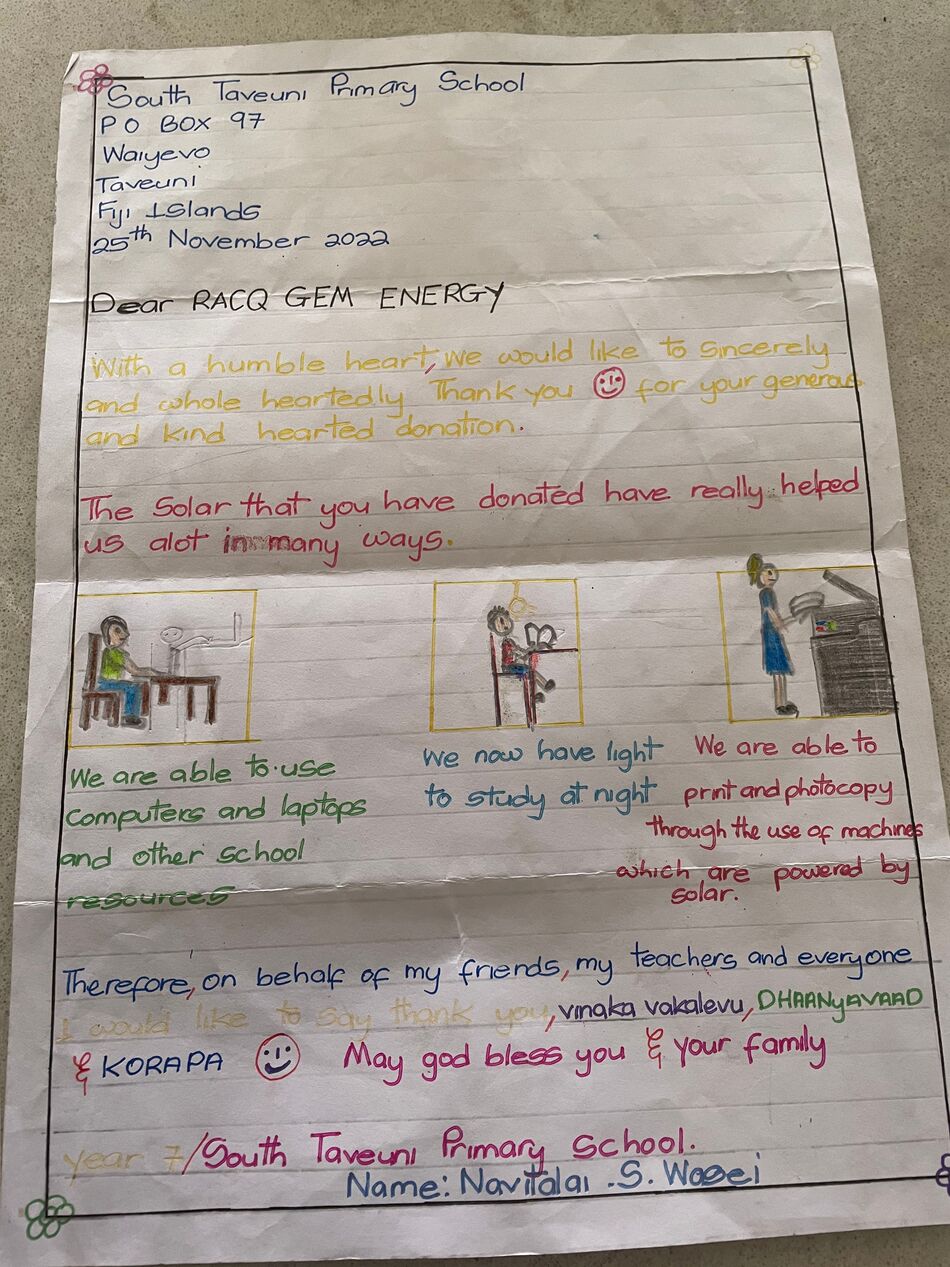 South Taveuni Primary School
P O BOX 97
Waiyevo
Taveuni
Fiji Islands
25th November 2022
Dear RACQ GEM ENERGY
With a humble heart, we would like to sincerely
and whole heartedly Thank you for your generous
and kind hearted donation.
The Solar that you have donated have really helped
us alot in many ways.
We are able to use
computers and laptops
and other school
resources
We now have light
to study at night
We are able to
print and photocopy
through the use of machines
which are powered by
solar.
Therefore, on behalf of my friends, my teachers and everyone
I would like to say thank you, vinaka vakalevu, DHAANyAVAAD
& KORAPA May god bless you & your family
year 7/South Taveuni Primary School.
Name: Navitalai .S.